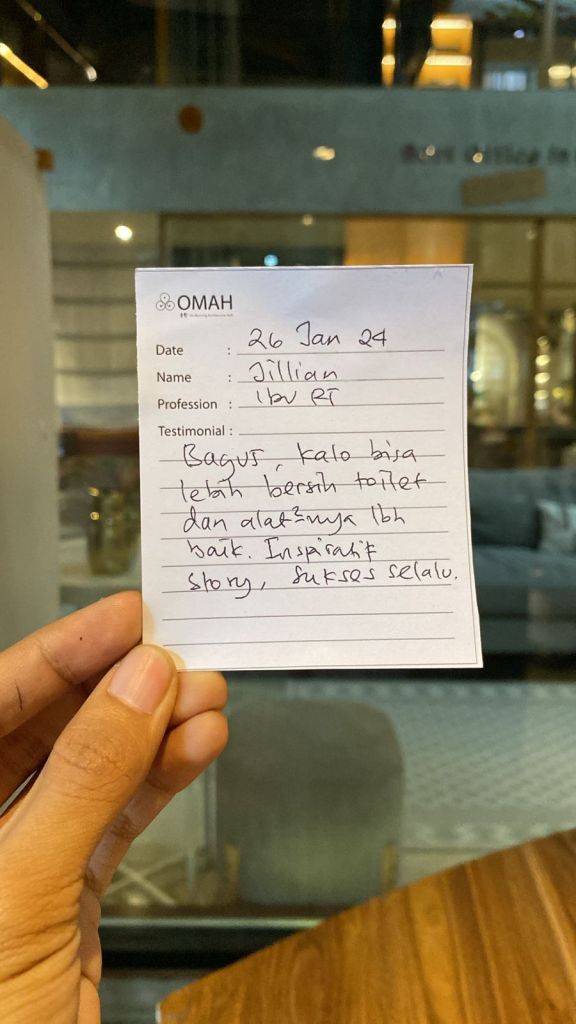 OMAH
Date : 26 Jan 24
Name : Jillian
Profession : Ibu RT
Testimonial :
Bagus, kalo bisa
lebih bersih toilet
dan alat²nya lbh
baik. Inspiratif
Story, Sukses selalu.